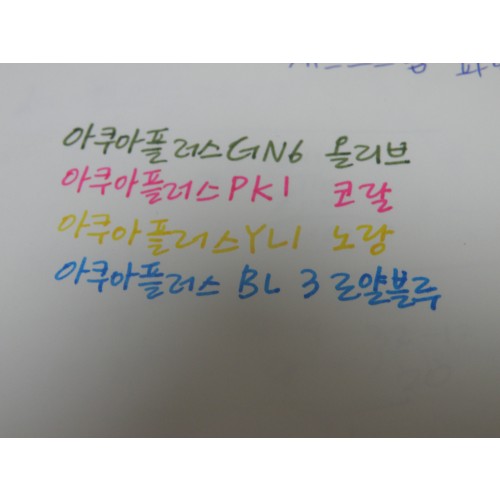 아쿠아플러스GN6 올리브
아쿠아플러스PK1 코랄
아쿠아플러스YL1 노랑
아쿠아플러스 BL 3 로얄블루